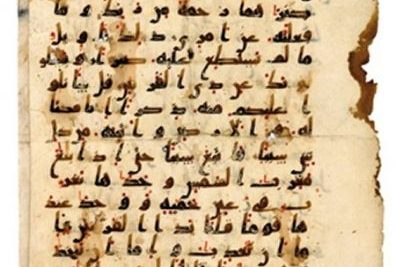 كنزهما رحمة من ربك و ما
فعلته عن امري ذلك تاويل
ما لم تسطع عليه صبرا و يسلو
نك عن ذي القرنين قل ساتلو
ا عليكم منه ذكرا انا مكنا
له في الارض و اتينه من كل
شي سببا فاتبع سببا حتى اذا بلغ
مغرب الشمس و جدها تغر
ب في عين حمية و و جد عند
ها قوما قلنا يذا القرنين ا
ما ان تعذب و اما ان تتخذ